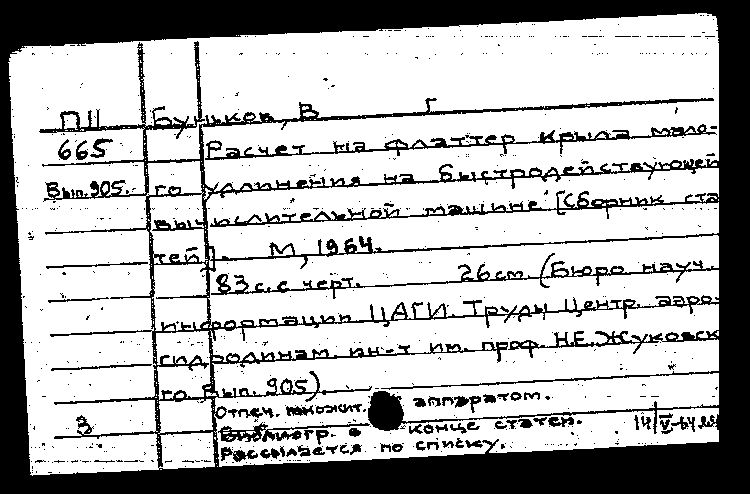 П11 Буньков, В Г
665 Расчет на флаттер крыла мало-
Вып.905. го удлинения на быстродействующей
вычислительной машине [Сборник ста
тей]. М, 1964.
83 с. с черт. 26 см. (Бюро науч.
информации ЦАГИ. Труды Центр. аэро-
гидродинам. ин-т им. проф. Н.Е. Жуковск
го Вып. 905).
Отпеч. множит. аппаратом.
3 Библиогр. в конце статей. 14/V-64
Рассылается по списку.